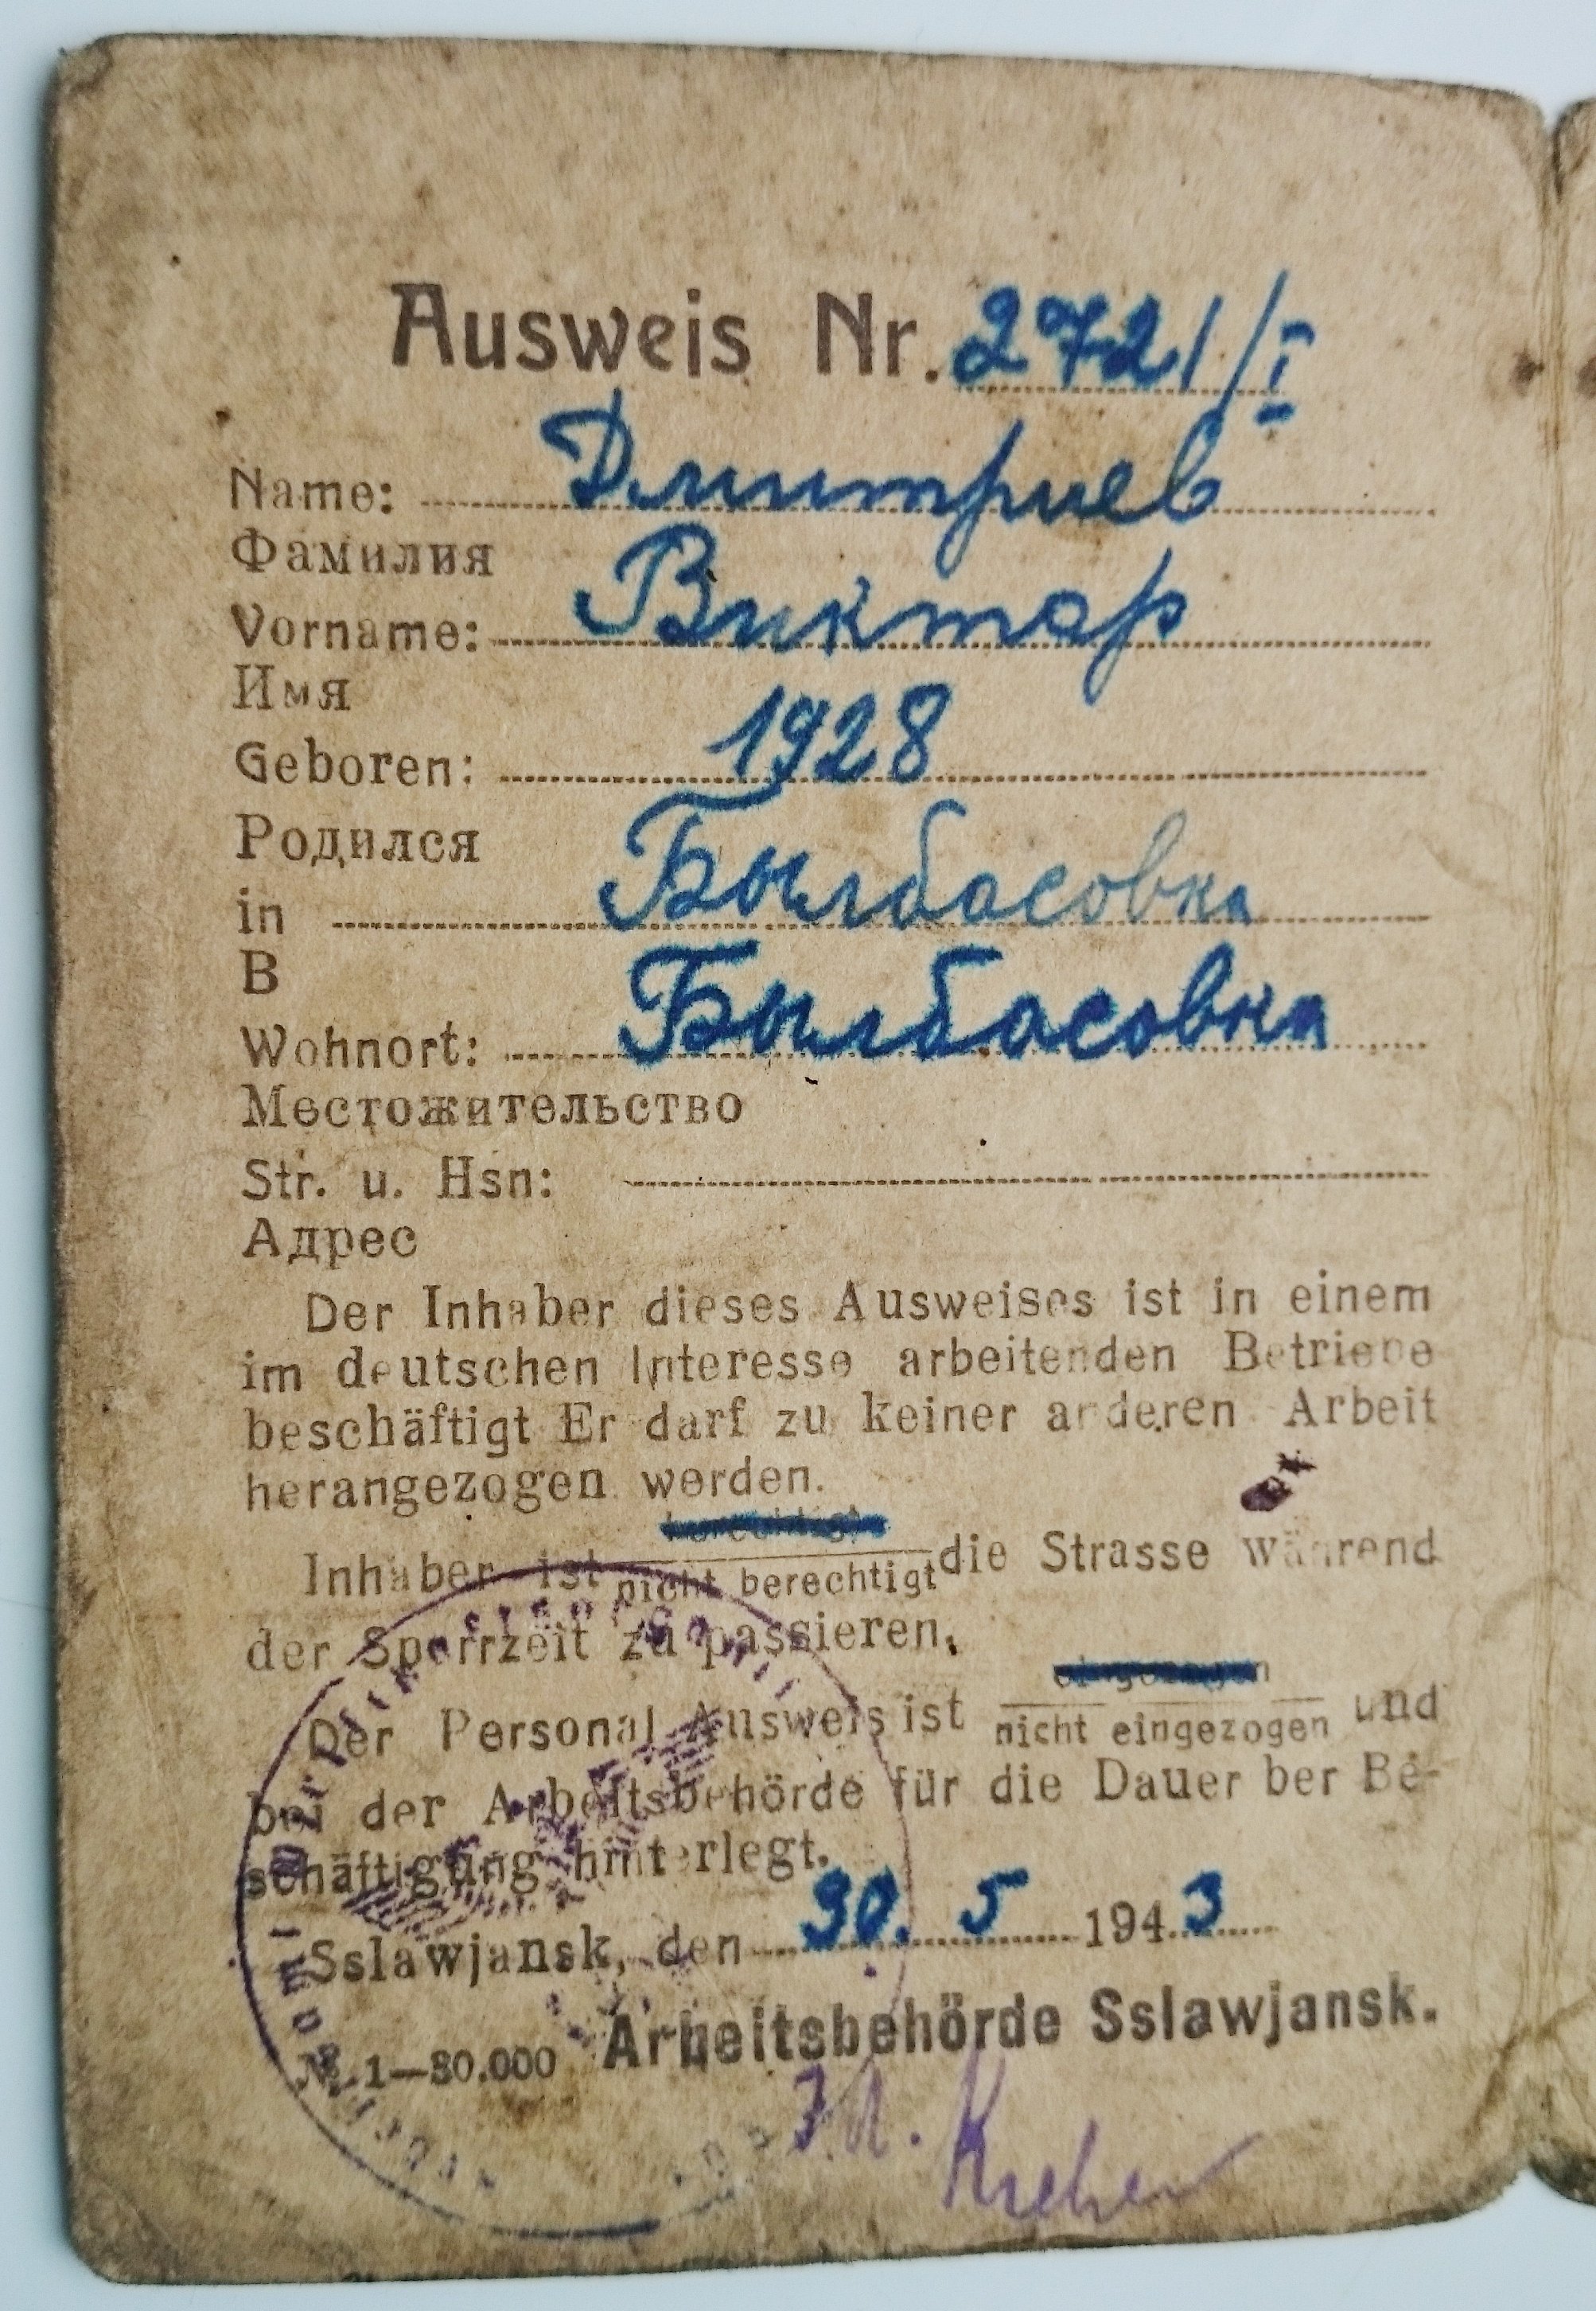 Ausweis Nr. 2721/I
Name: Дмитриев
Фамилия
Vorname: Виктор
Имя
Geboren: 1928
Родился
in Былбасовка
В
Wohnort: Былбасовка
Местожительство
Str. u. Hsn:
Адрес
Der Inhaber dieses Ausweises ist in einem
im deutschen Interesse arbeitenden Betriebe
beschäftigt Er darf zu keiner anderen Arbeit
herangezogen werden.
berechtigt
Inhaber ist nicht berechtigt die Strasse während
der Sperrzeit zu passieren.
eingezogen
Der Personal Ausweis ist nicht eingezogen und
bei der Arbeitsbehörde für die Dauer ber Be-
schäftigung hinterlegt.
Sslawjansk, den 30. 5 1943
Arbeitsbehörde Sslawjansk.
№ 1—30.000
J.A.